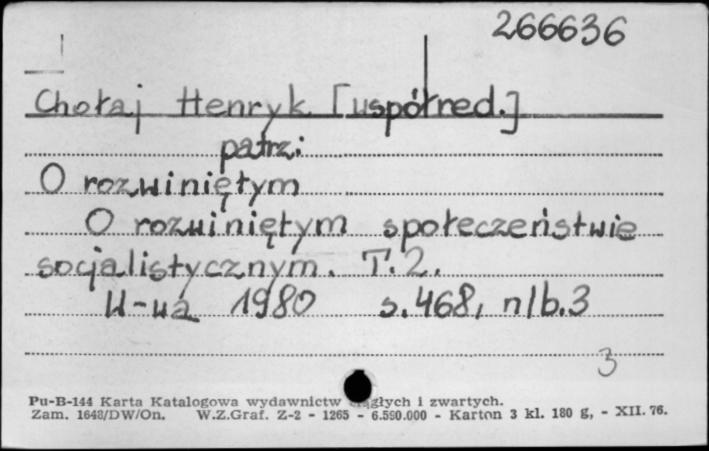 266636
Chołaj Henryk [współred.]
patrz:
O rozwiniętym
O rozwiniętym społeczeństwie
socjalistycznym. T.2.
W-wa 1980 s.468, nlb.3
3
Pu-B-144 Karta Katalogowa wydawnictw ciągłych i zwartych.
Zam. 1648/DW/On. W.Z.Graf. Z-2 - 1265 - 6.590.000 - Karton 3 kl. 180 g, - XII. 76.